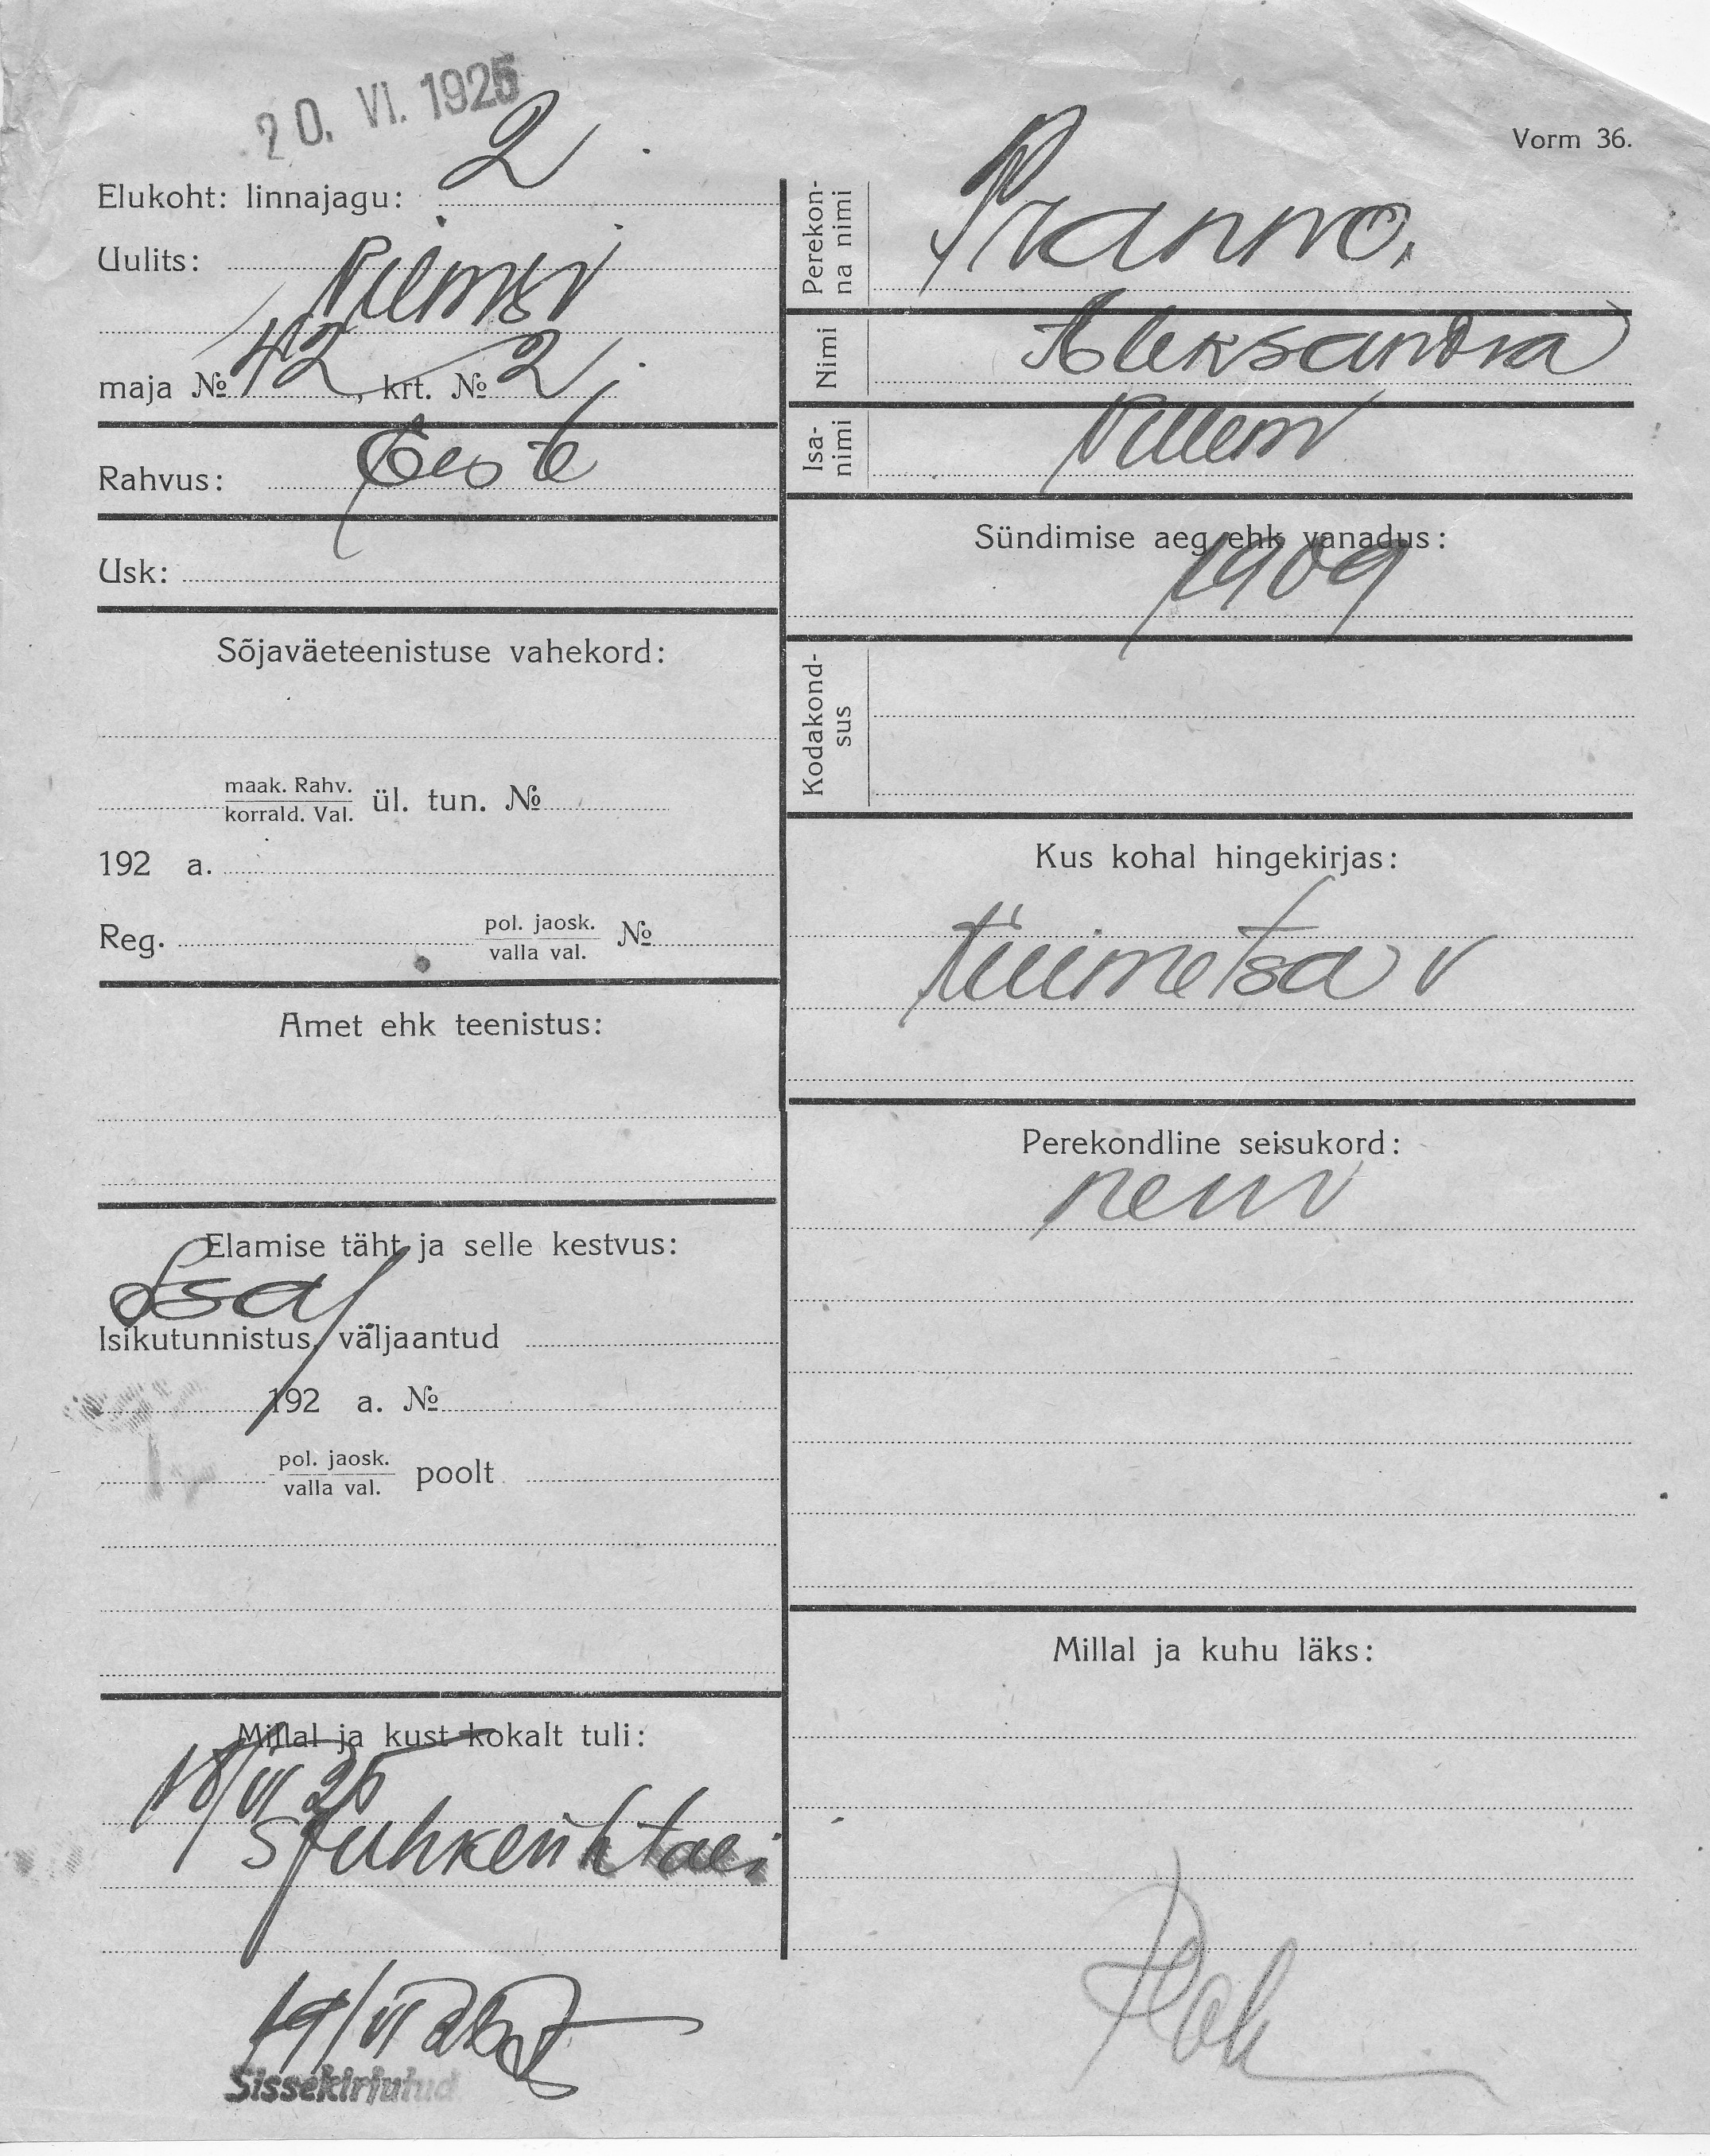 20. VI. 1925
Vorm 36.
Elukoht: linnajagu: 2
Uulits:
maja № 42, krt. № 2
Rahvus: Eesti
Usk:
Sõjaväeteenistuse vahekord:
maak. Rahv.
korrald. Val. ül. tun. №
192 a.
Reg. pol. jaosk.
valla val. №
Amet ehk teenistus:
Elamise täht ja selle kestvus:
Isikutunnistus, väljaantud
192 a. №
pol. jaosk.
valla val. poolt
Millal ja kust kokalt tuli:
18/VI 25
19/VI
Sissekirjutud
Perekon-
na nimi
Pranno,
Nimi Aleksandra
Isa-
nimi
Villem
Sündimise aeg ehk vanadus:
1909
Kodakond-
sus
Kus kohal hingekirjas:
Perekondline seisukord:
neiu
Millal ja kuhu läks: